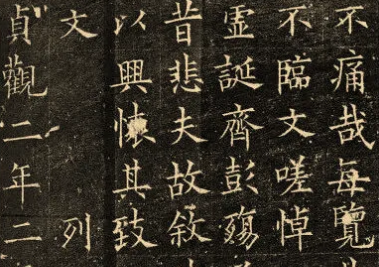 不痛哉每覽
不臨文嗟悼
虛誕齊彭殤
昔悲夫故敘
以興懷其致
文 列
貞觀二年二